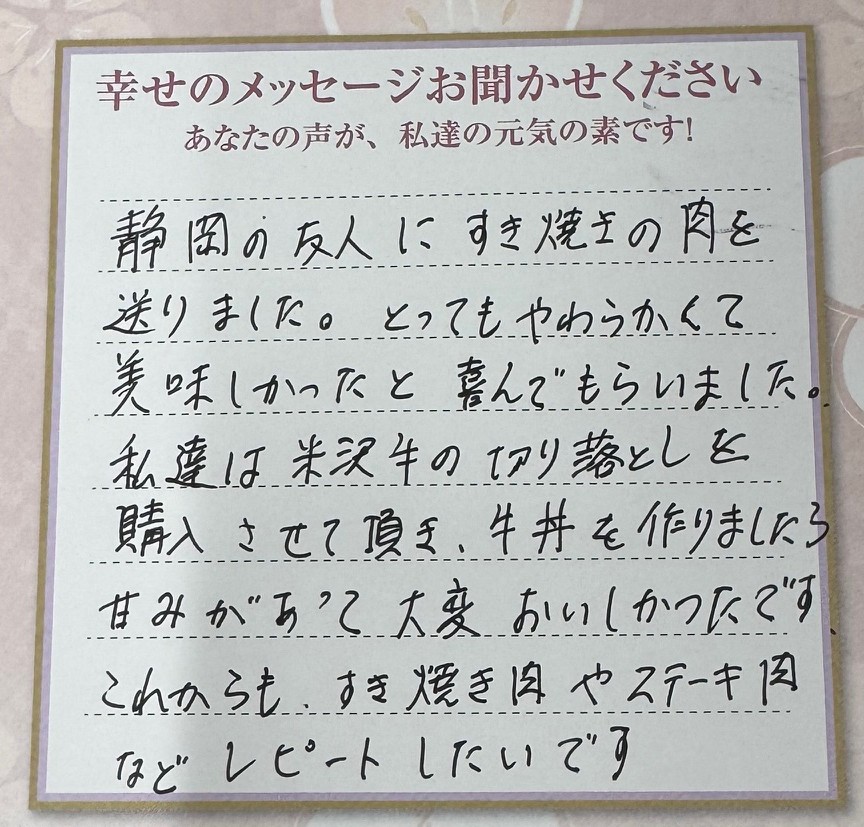 幸せのメッセージお聞かせください
あなたの声が、私達の元気の素です!
静岡の友人にすき焼きの肉を
送りました。とってもやわらかくて
美味しかったと喜んでもらいました。
私達は米沢牛の切り落としを
購入させて頂き、牛丼を作りましたら
甘みがあって大変おいしかったです
これからも、すき焼き肉やステーキ肉
などレピートしたいです